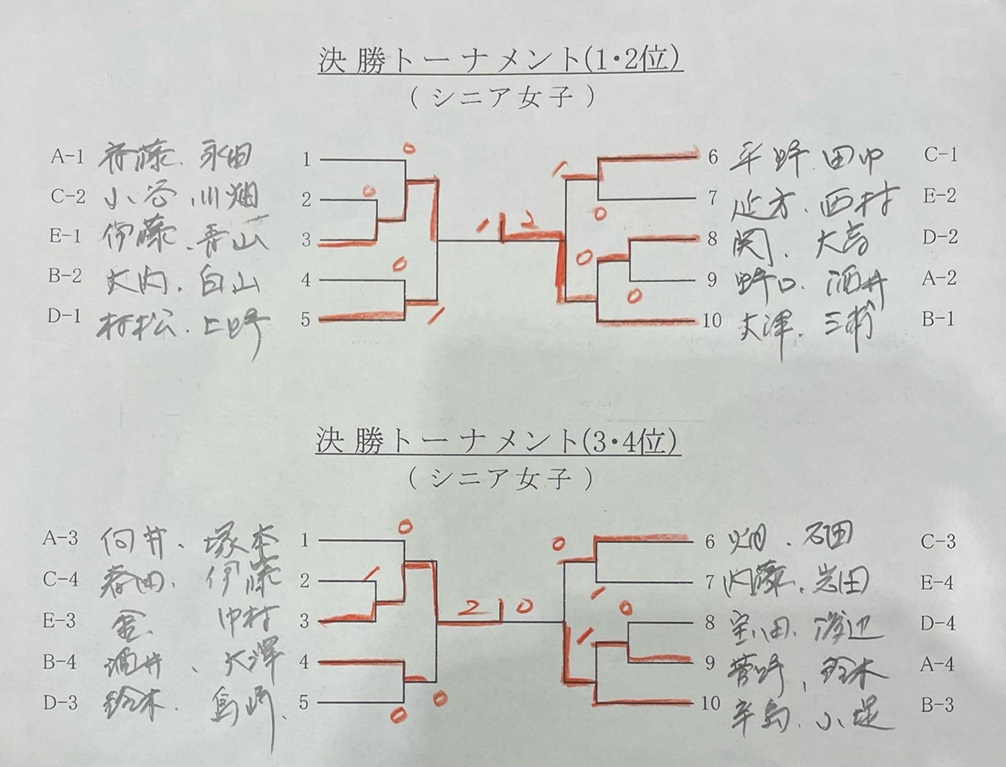 決勝トーナメント(1・2位)
(シニア女子)
A-1 斉藤、永田 1 0 6 平野、田中 C-1
C-2 小谷、川畑 2 0 1 7 延方、西村 E-2
E-1 伊藤、青山 3 1 2 0 8 関、大高 D-2
B-2 大内、白山 4 0 0 9 野口、酒井 A-2
D-1 村松、上野 5 1 0 10 大澤、三村 B-1
決勝トーナメント(3・4位)
(シニア女子)
A-3 向井、塚本 1 0 0 6 畑、石田 C-3
C-4 春田、伊藤 2 1 1 7 内藤、岩田 E-4
E-3 中村 3 2 0 0 8 田、渡辺 D-4
B-4 酒井、大澤 4 1 9 菅野、鈴木 A-4
D-3 鈴木、島崎 5 0 0 10 辛島、小堤 B-3